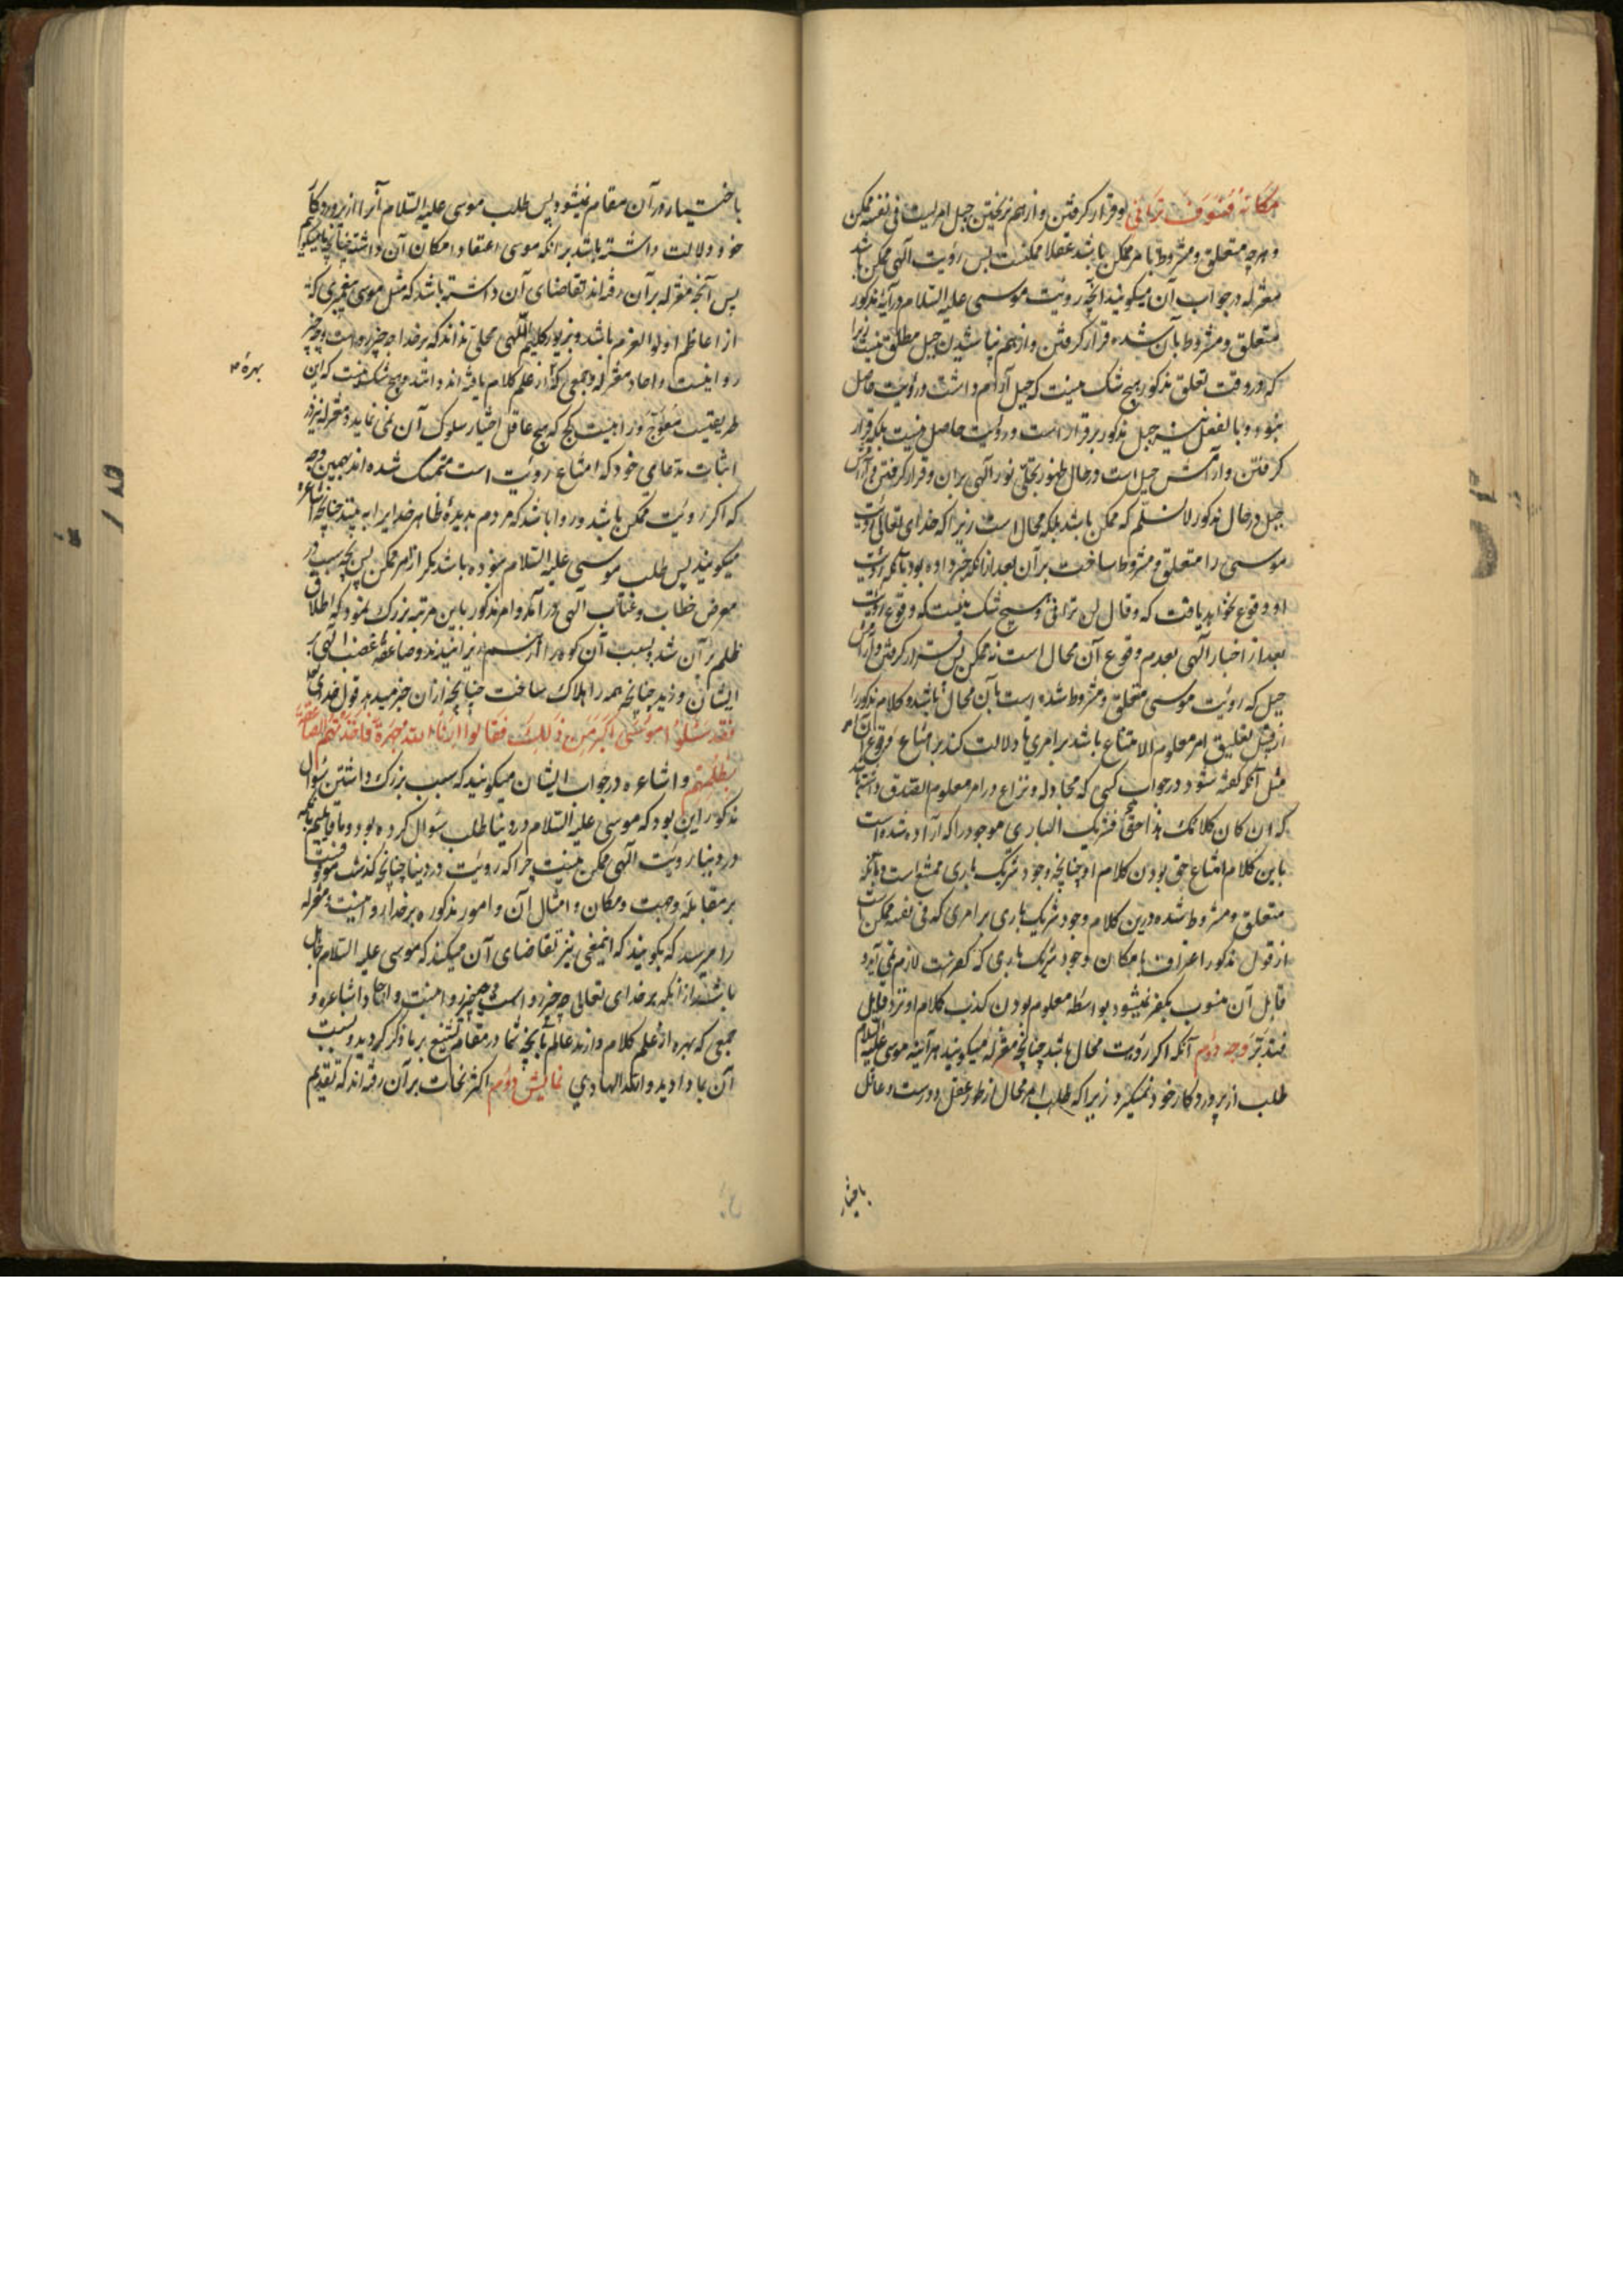 مکانه فسوف ترانی و قرار گرفتن و از هم نریختن جبل امریست فی نفسه ممکن
و هرچه متعلق و مشروط بامر ممکن باشد عقلا ممکنست پس رؤیت الهی ممکن باشد
معتزله در جواب آن میگویند آنچه رؤیت موسی علیه السلام در آیۀ مذکور
متعلق و مشروط بآن شده قرار گرفتن و از هم نپاشیدن جبل مطلق نیست زیرا
که در وقت تعلق مذکور هیچ شک نیست که جبل آرام داشت و رؤیت حاصل
نبود و بالفعل نیز جبل مذکور برقرار است و رؤیت حاصل نیست بلکه قرار
گرفتن و آرامش جبل است در حال ظهور تجلی نور الهی بران و قرار گرفتن و آرامش
جبل در حال مذکور لانسلم که ممکن باشد بلکه محال است زیرا که خدای تعالی رؤیت
موسی را متعلق و مشروط ساخت بر آن بعد از آنکه خبر داده بود بآنکه رؤیت
او وقوع نخواهد یافت که و قال لن ترانی و هیچ شک نیست که وقوع رؤیت
بعد از اخبار الهی بعدم وقوع آن محال است نه ممکن پس قرار گرفتن و آرامش
جبل که رؤیت موسی متعلق و مشروط شده است بآن محال باشد و کلام مذکور
از قبیل تعلیق امر معلوم الامتناع باشد بر امری تا دلالت کند بر امتناع وقوع آن امر
مثل آنکه گفته شود در جواب کسی که مجادله و نزاع در امر معلوم الصدق داشته باشد
که ان کان کلامک هذا حق فشریک الباری موجود را که اراده شده است
باین کلام امتناع حق بودن کلام او چنانچه وجود شریک باری ممتنع است و بآنکه
متعلق و مشروط شده درین کلام وجود شریک باری بر امری که فی نفسه ممکن است
از قول مذکور اعتراف بامکان وجود شریک باری که کفر است لازم نمی آید و
قایل آن منسوب بکفر نمیشود بواسطه معلوم بودن کذب کلام او نزد قایل
فتدبر وجه دوم آنکه اگر رؤیت محال باشد چنانچه معتزله میگویند هر آینه موسی علیه السلام
طلب از پروردگار خود نمیکرد زیرا که طلب امر محال از طور عقل دور است و عاقل
باختیار
باختیار در آن مقام نمیشود پس طلب موسی علیه السلام آنرا از پروردگار
خود دلالت داشته باشد بر آنکه موسی اعتقاد امکان آن داشت چنانچه ما میگوئیم
پس آنچه معتزله بر آن رفته اند تقاضای آن داشته باشد که مثل موسی پیغمبری که
از اعاظم اولوالعزم باشد و بزیور کلیم اللهی محلی نداند که بر خدا چه چیز رواست و چه چیز
روا نیست و احاد معتزله و جمعی که از علم کلام یافته اند دانند و هیچ شک نیست که این
بهرۀ
طریقیست معوج و راهیست کج که هیچ عاقل اختیار سلوک آن نمی نماید و معتزله نیز در
اثبات مدعای خود که امتناع رؤیت است متمسک شده اند بهمین وجه
که اگر رؤیت ممکن باشد و روا باشد که مردم بدیدۀ ظاهر خدایرا به بینند چنانچه اشاعره
میگویند پس طلب موسی علیه السلام نبوده باشد مگر از امر ممکن پس بچه سبب در
معرض خطاب و عتاب الهی در آمد و امر مذکور باین مرتبه بزرگ نمود که اطلاق
ظلم بر آن شد و بسبب آن کوه را از هم ریزانیدند و صاعقۀ غضب الهی بر
ایشان وزید چنانچه همه را هلاک ساخت چنانچه از آن خبر میدهد قول خدای تعالی
فقد سئلوا موسی اکبر من ذلک فقالوا ارنا الله جهرة فاخذتهم الصاعقة
بظلمهم و اشاعره در جواب ایشان میگویند که سبب بزرگ داشتن سؤال
مذکور این بود که موسی علیه السلام در دنیا طلب سؤال کرده بود و ما قایلیم بآنکه
در دنیا رؤیت الهی ممکن نیست چرا که رؤیت در دنیا چنانچه گذشت موقوفست
بر مقابله و جهت و مکان و امثال آن و امور مذکوره بر خدا روا نیست و معتزله
را میرسد که بگویند که اینمعنی نیز تقاضای آن میکند که موسی علیه السلام جاهل
باشد از آنکه بر خدای تعالی چه چیز رواست و چه چیز روا نیست و احاد اشاعره و
جمعی که بهره از علم کلام دارند عالم بآنچه شما در مقام تشنیع بر ما ذکر کردید و نسبت
آن بما دادید والله الهادی نمایش دوم اکثر نحات بر آن رفته اند که تقدیم